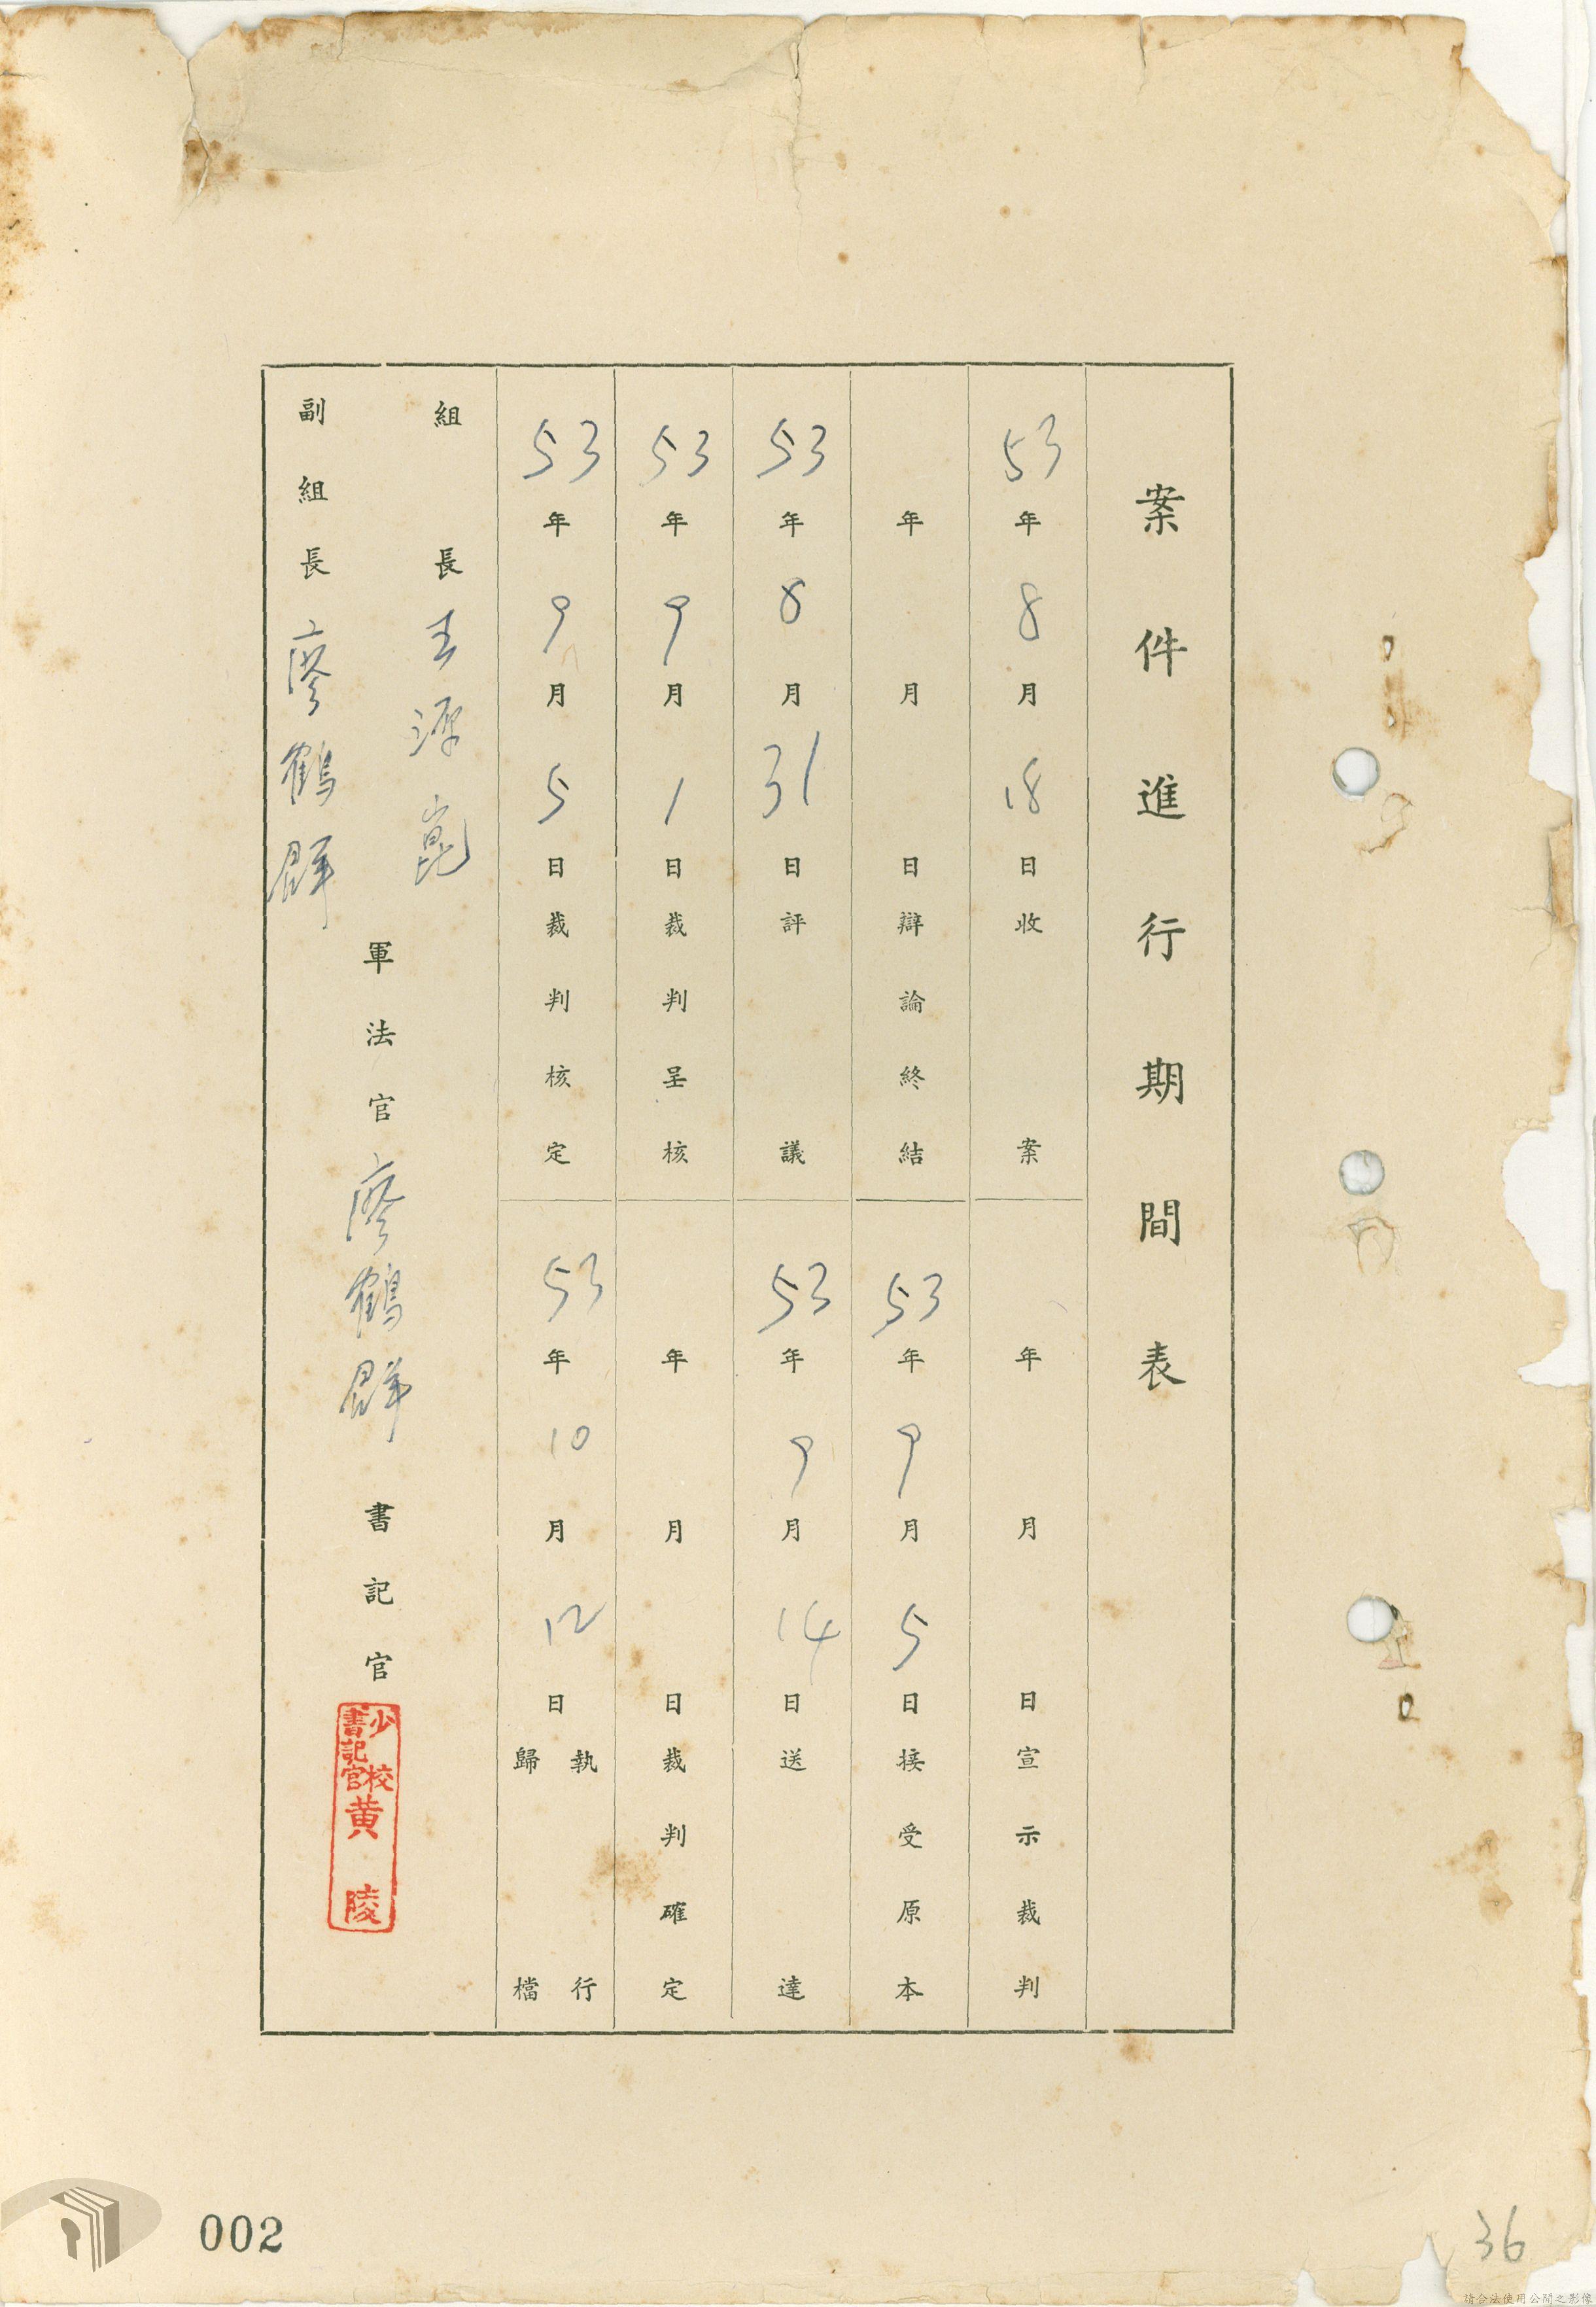 案件進行期間表
53年8月18日收案
年月日宣示裁判
年月日辯論終結
53年9月5日接受原本
53年8月31日評議
53年9月14日送達
53年9月1日裁判呈核
年月日裁判確定
53年9月5日裁判核定
53年10月12日執行歸檔
組長王
副組長廖鶴群
軍法官廖鶴群
書記官
少校書記官黃陵
002
36
請合法使用公開之影像